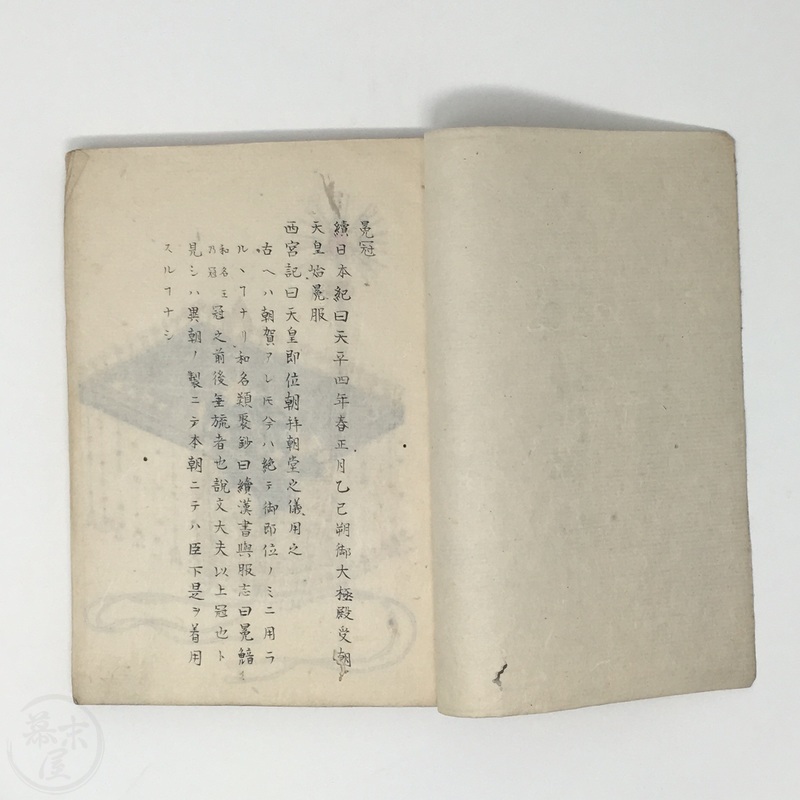 冕冠
續日本紀曰天平四年春正月乙巳朔御大極殿受朝
天皇始冕服
西宮記曰天皇即位朝拝朝堂之儀用之
古ヘハ朝賀アレ𪜈今ハ絶テ御即位ノミニ用ラ
ルヽヿナリ和名類聚鈔曰續漢書輿服志曰冕
和名玉
乃冠
冠之前後垂旒者也説文大夫以上冠也ト
見シハ異朝ノ製ニテ本朝ニテハ臣下是ヲ着用
スルヿナシ
幕末屋